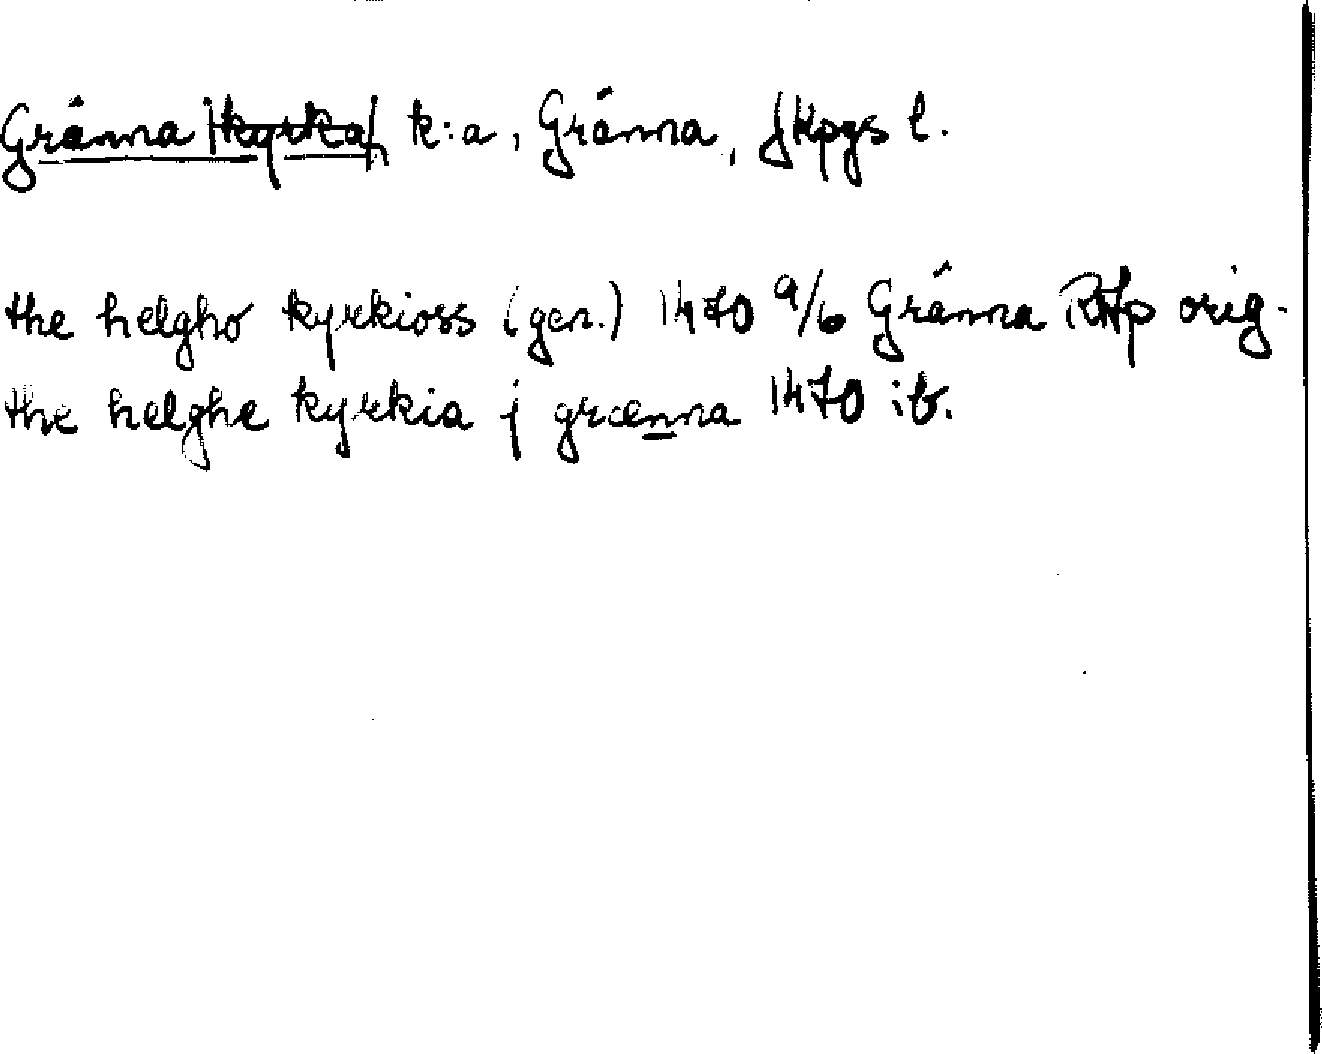 Gränna kyrka k:a, Gränna, Jkpgs l.
the helgho kyrkioss (gen.) 1470 9/6 Gränna RAp orig.
the helghe kyrkia j grænna 1470 ib.